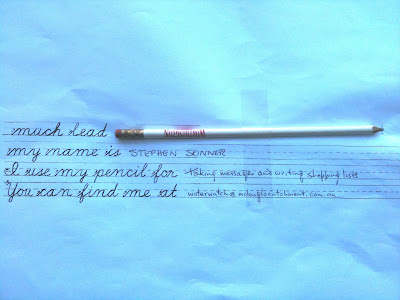 much lead
my name is STEPHEN
I use my pencil for taking messages and writing shopping lists
You can find me at